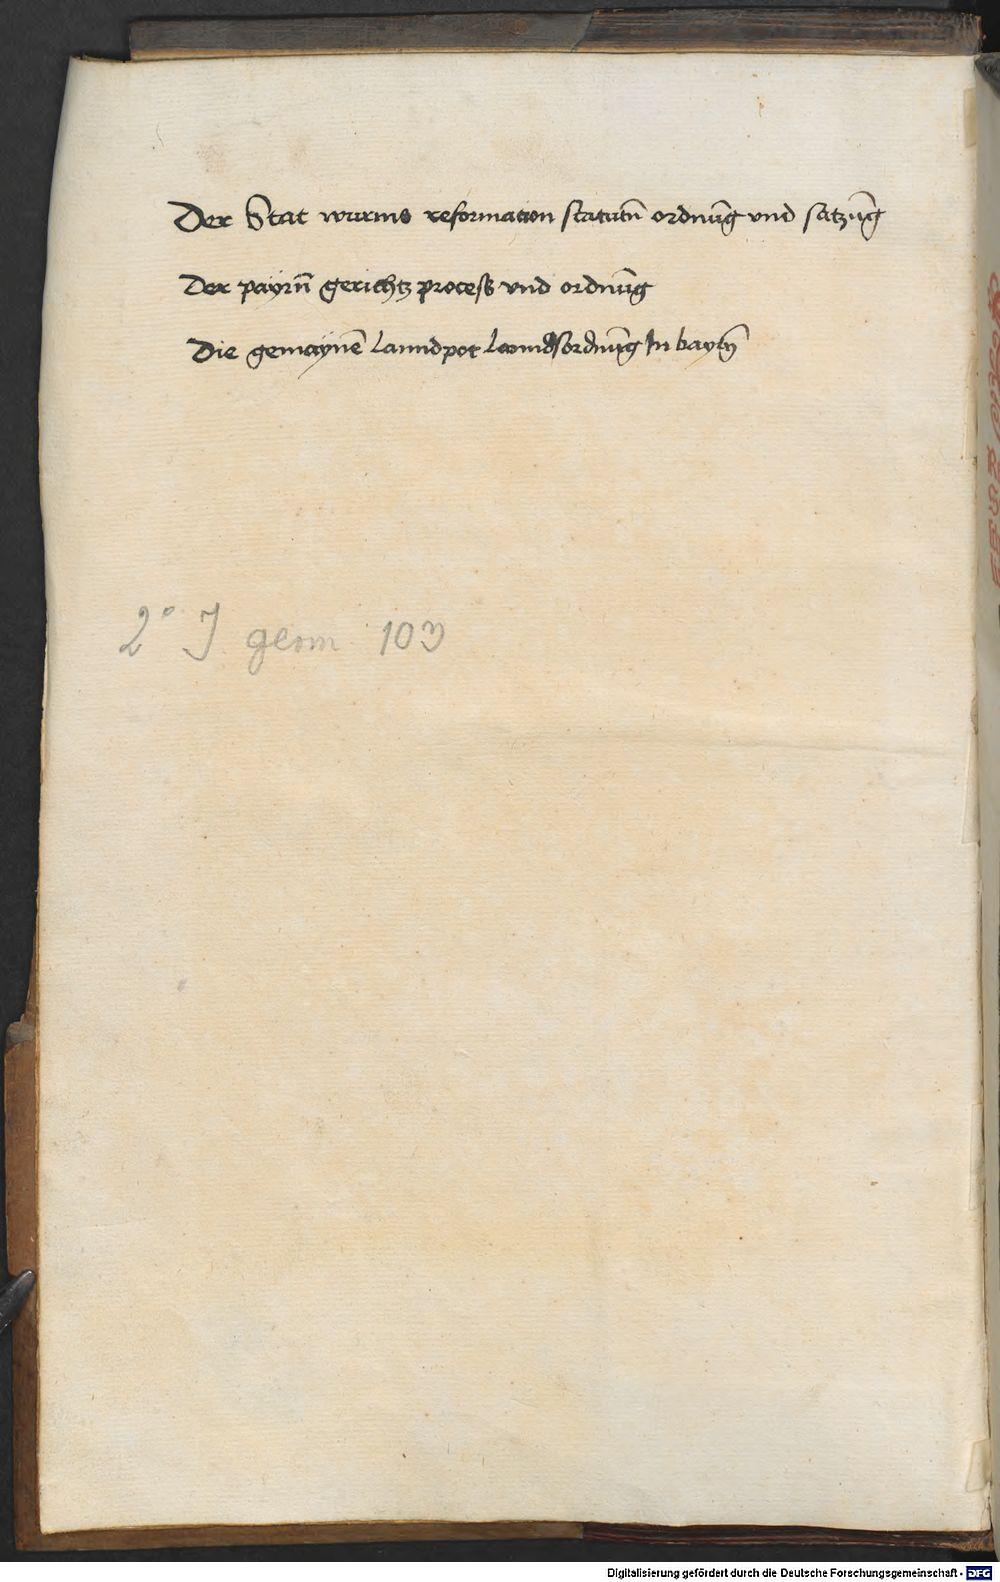 Der Stat wurms reformation statutn̄ ordnūg vnd satzūg
Der payrn̄ gerichtz process vnd ordnūg
Die gemaynē lanndpot lanndsordnūg In bayrn̄
2° J. germ. 103
Digitalisierung gefördert durch die Deutsche Forschungsgemeinschaft - DFG